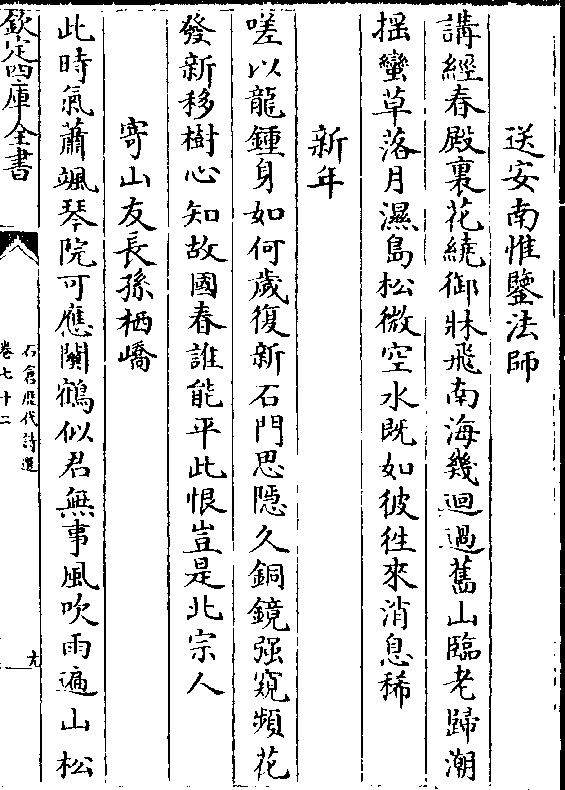 送安南惟鑒法師
講經春殿裏花繞御牀飛南海幾迴過舊山臨老歸潮
揺蠻草落月濕島松微空水既如彼徃來消息稀
新年
嗟以龍鍾身如何歲復新石門思隱久銅鏡强窺頻花
發新移樹心知故國春誰能平此恨豈是北宗人
寄山友長孫栖嶠
此時氣蕭颯琴院可應關鶴似君無事風吹雨遍山松
欽定四庫全書
石倉歷代詩選
卷七十二